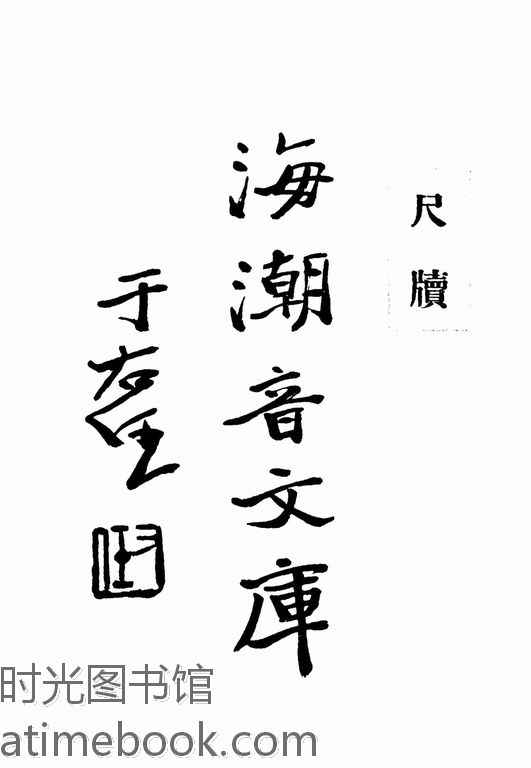 尺牘
海潮音文庫
于右任
时光图书馆
atimebook.com